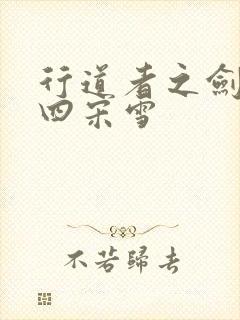 行道者之劍
四宋雪
不若歸去